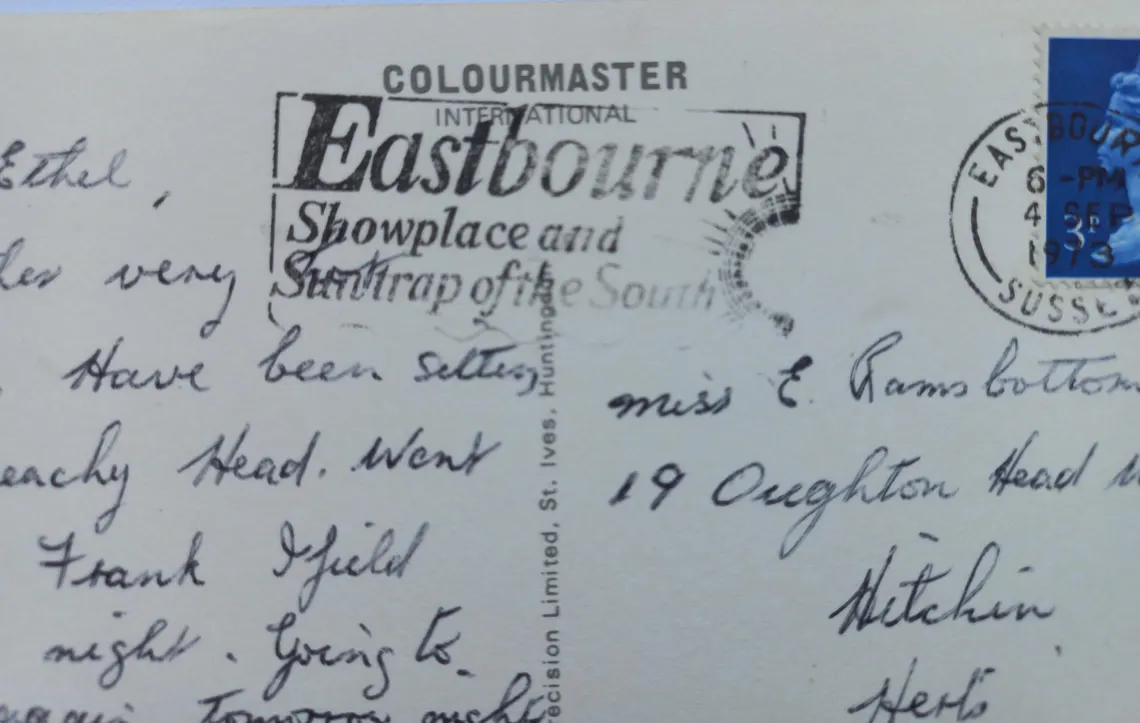 COLOURMASTER
INTERNATIONAL
Eastbourne
Showplace and
Suntrap of the South
EASTBOUR
6 -PM
4 SEP
1973
SUSSE
3P
Ethel,
her very hot
Have been sitting
eachy Head. Went
Frank Ifield
night. Going to
again tomorrow night
recision Limited, St. Ives, Huntingdon
miss E. Ramsbottom
19 Oughton Head
Hitchin
Herts